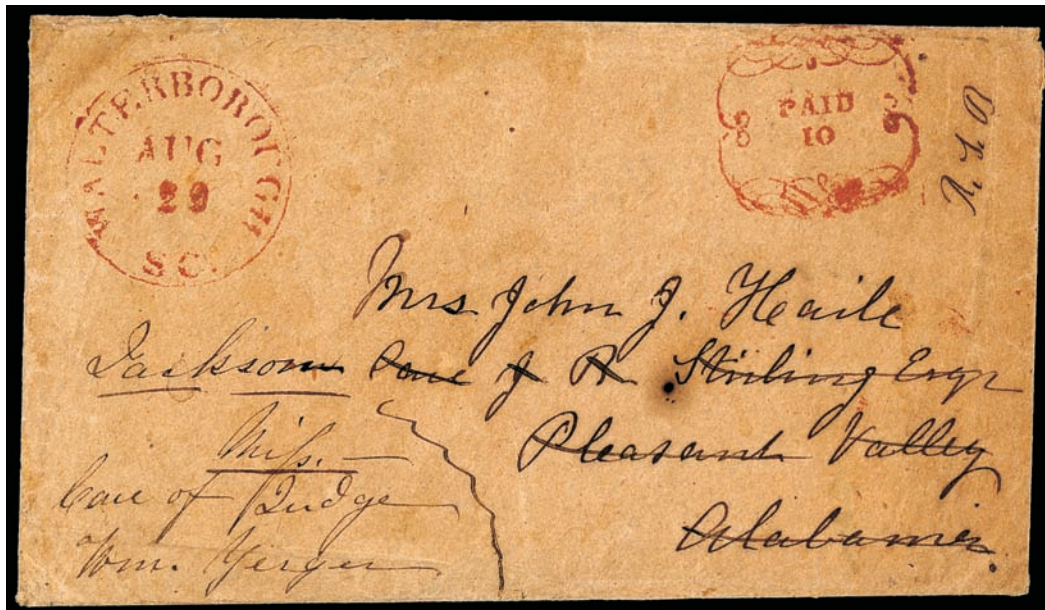 WALTERBOROUGH
AUG
29
S C.
PAID
10
Mrs John J. Haile
Care J R Stirling Esqr
Pleasant Valley
Alabama.
Jackson
Miss. —
Care of Judge
Wm. Yerger